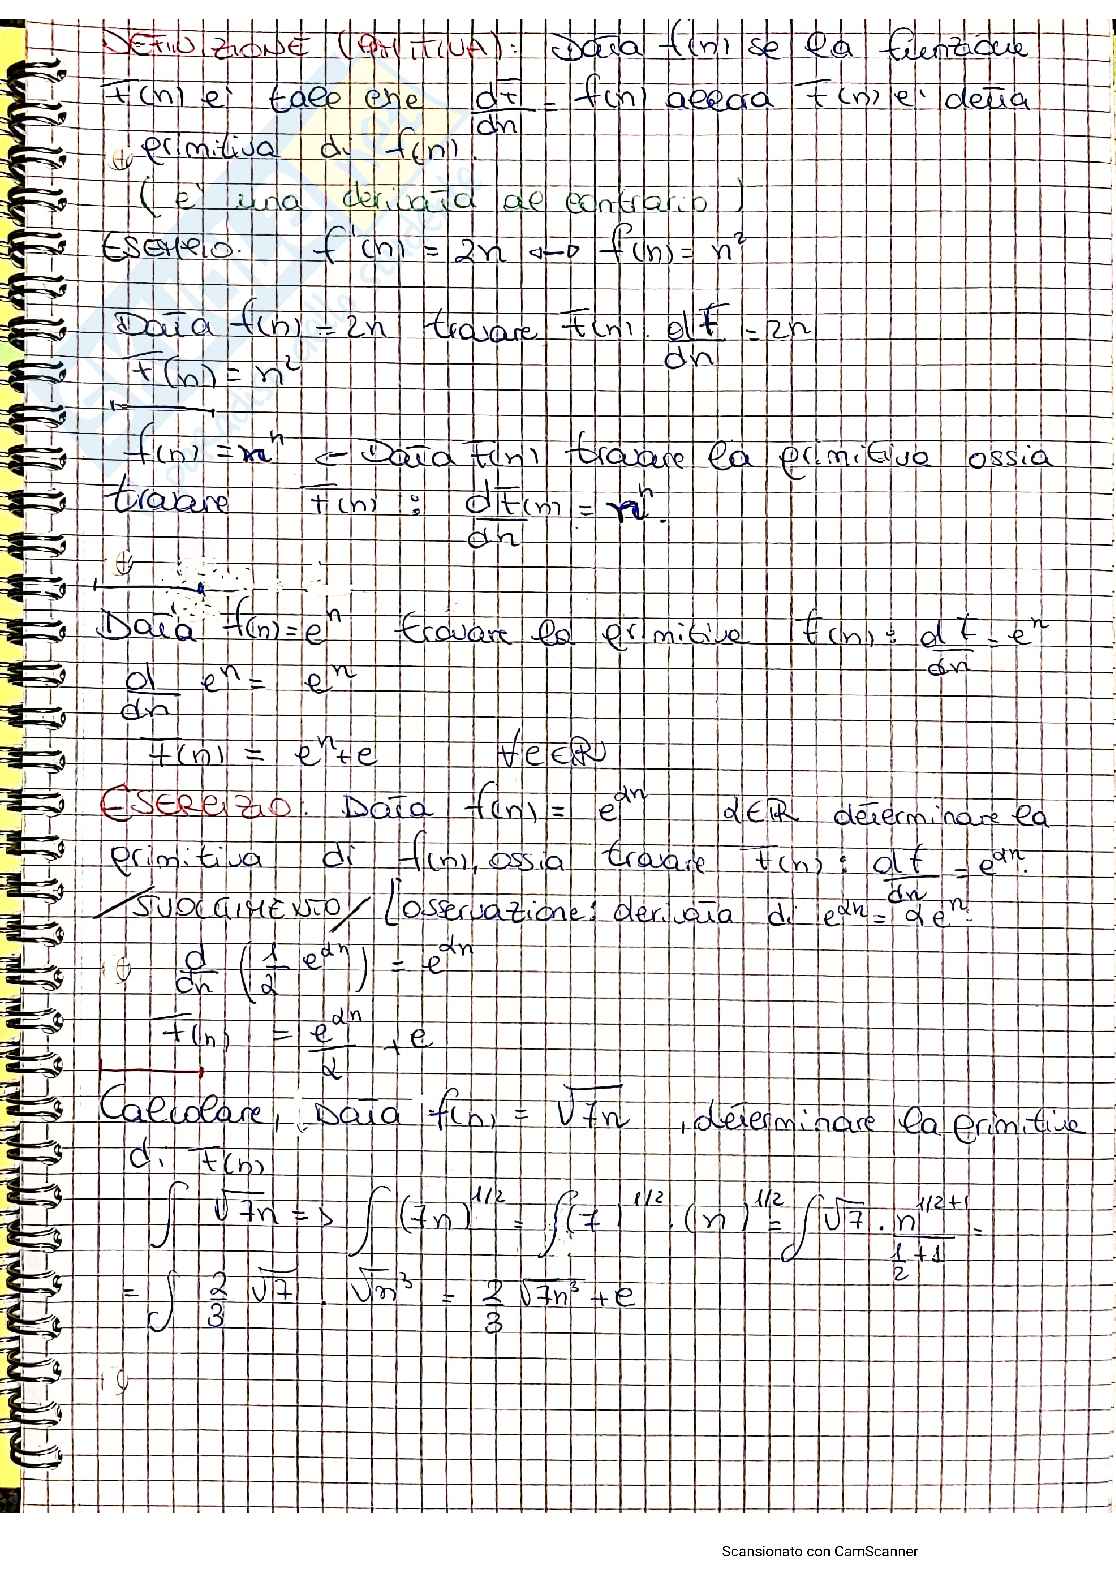 DEFINIZIONE (PRIMITIVA): Data f(n) se la funzione
F(n) e' tale che dF/dn = f(n) allora F(n) e' detta
primitiva di f(n).
(e' una derivata al contrario)
ESEMPIO: f'(n) = 2n ↔ f(n) = n²
Data f(n) = 2n trovare F(n). dF/dn = 2n
F(n) = n²
f(n) = nⁿ ← Data f(n) trovare la primitiva ossia
trovare F(n) : dF(n)/dn = nⁿ.
Data f(n) = eⁿ trovare la primitiva F(n) : dF/dn = eⁿ
d/dn eⁿ = eⁿ
F(n) = eⁿ + c ∀c∈ℝ
ESERCIZIO: Data f(n) = e^αn α∈ℝ determinare la
primitiva di f(n), ossia trovare F(n) : dF/dn = e^αn.
/SVOLGIMENTO/ [osservazione: derivata di e^αn = αeⁿ.
d/dn (1/2 e^αn) = e^αn
F(n) = e^αn/α + c
Calcolare, Data f(n) = √7n , determinare la primitiva
di F(n)
∫ √7n => ∫ (7n)^1/2 = ∫ (7)^1/2 · (n)^1/2 = ∫ √7 · n^1/2+1 / 1/2+1 =
= ∫ 2/3 √7 · √n³ = 2/3 √7n³ + c
Scansionato con CamScanner